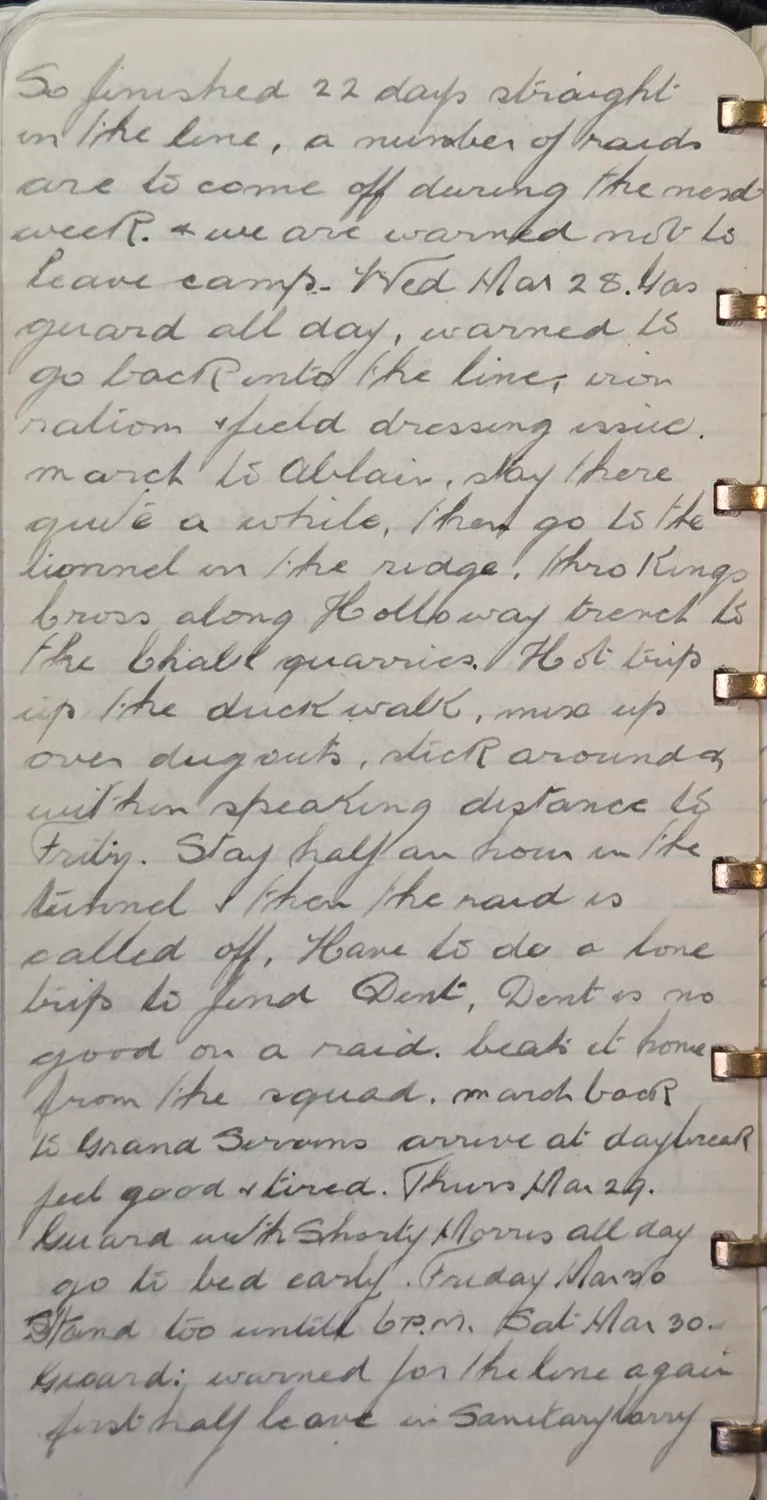 So finished 22 days straight
in the line, a number of raids
are to come off during the next
week. & we are warned not to
leave camp. Wed Mar 28. Gas
guard all day, warned to
go back into the line, iron
ration & field dressing issue.
march to Ablain, stay there
quite a while, then go to the
tionnel in the ridge, thro Kings
Cross along Holloway trench to
the Chalk quarries. Hot trip
up the duck walk, mix up
over dugouts, stick around &
within speaking distance to
Fritz. Stay half an hour in the
tunnel & then the raid is
called off. Have to do a lone
trip to find Dent, Dent is no
good on a raid. beats it home
from the squad. march back
to Grand Servins arrive at daybreak
feel good & tired. Thurs Mar 29.
Guard with Shorty Morris all day
go to bed early. Friday Mar 30
Stand too untill 6 P.M. Sat Mar 30.
Guard; warned for the line again
first half leave in Sanitary lorry